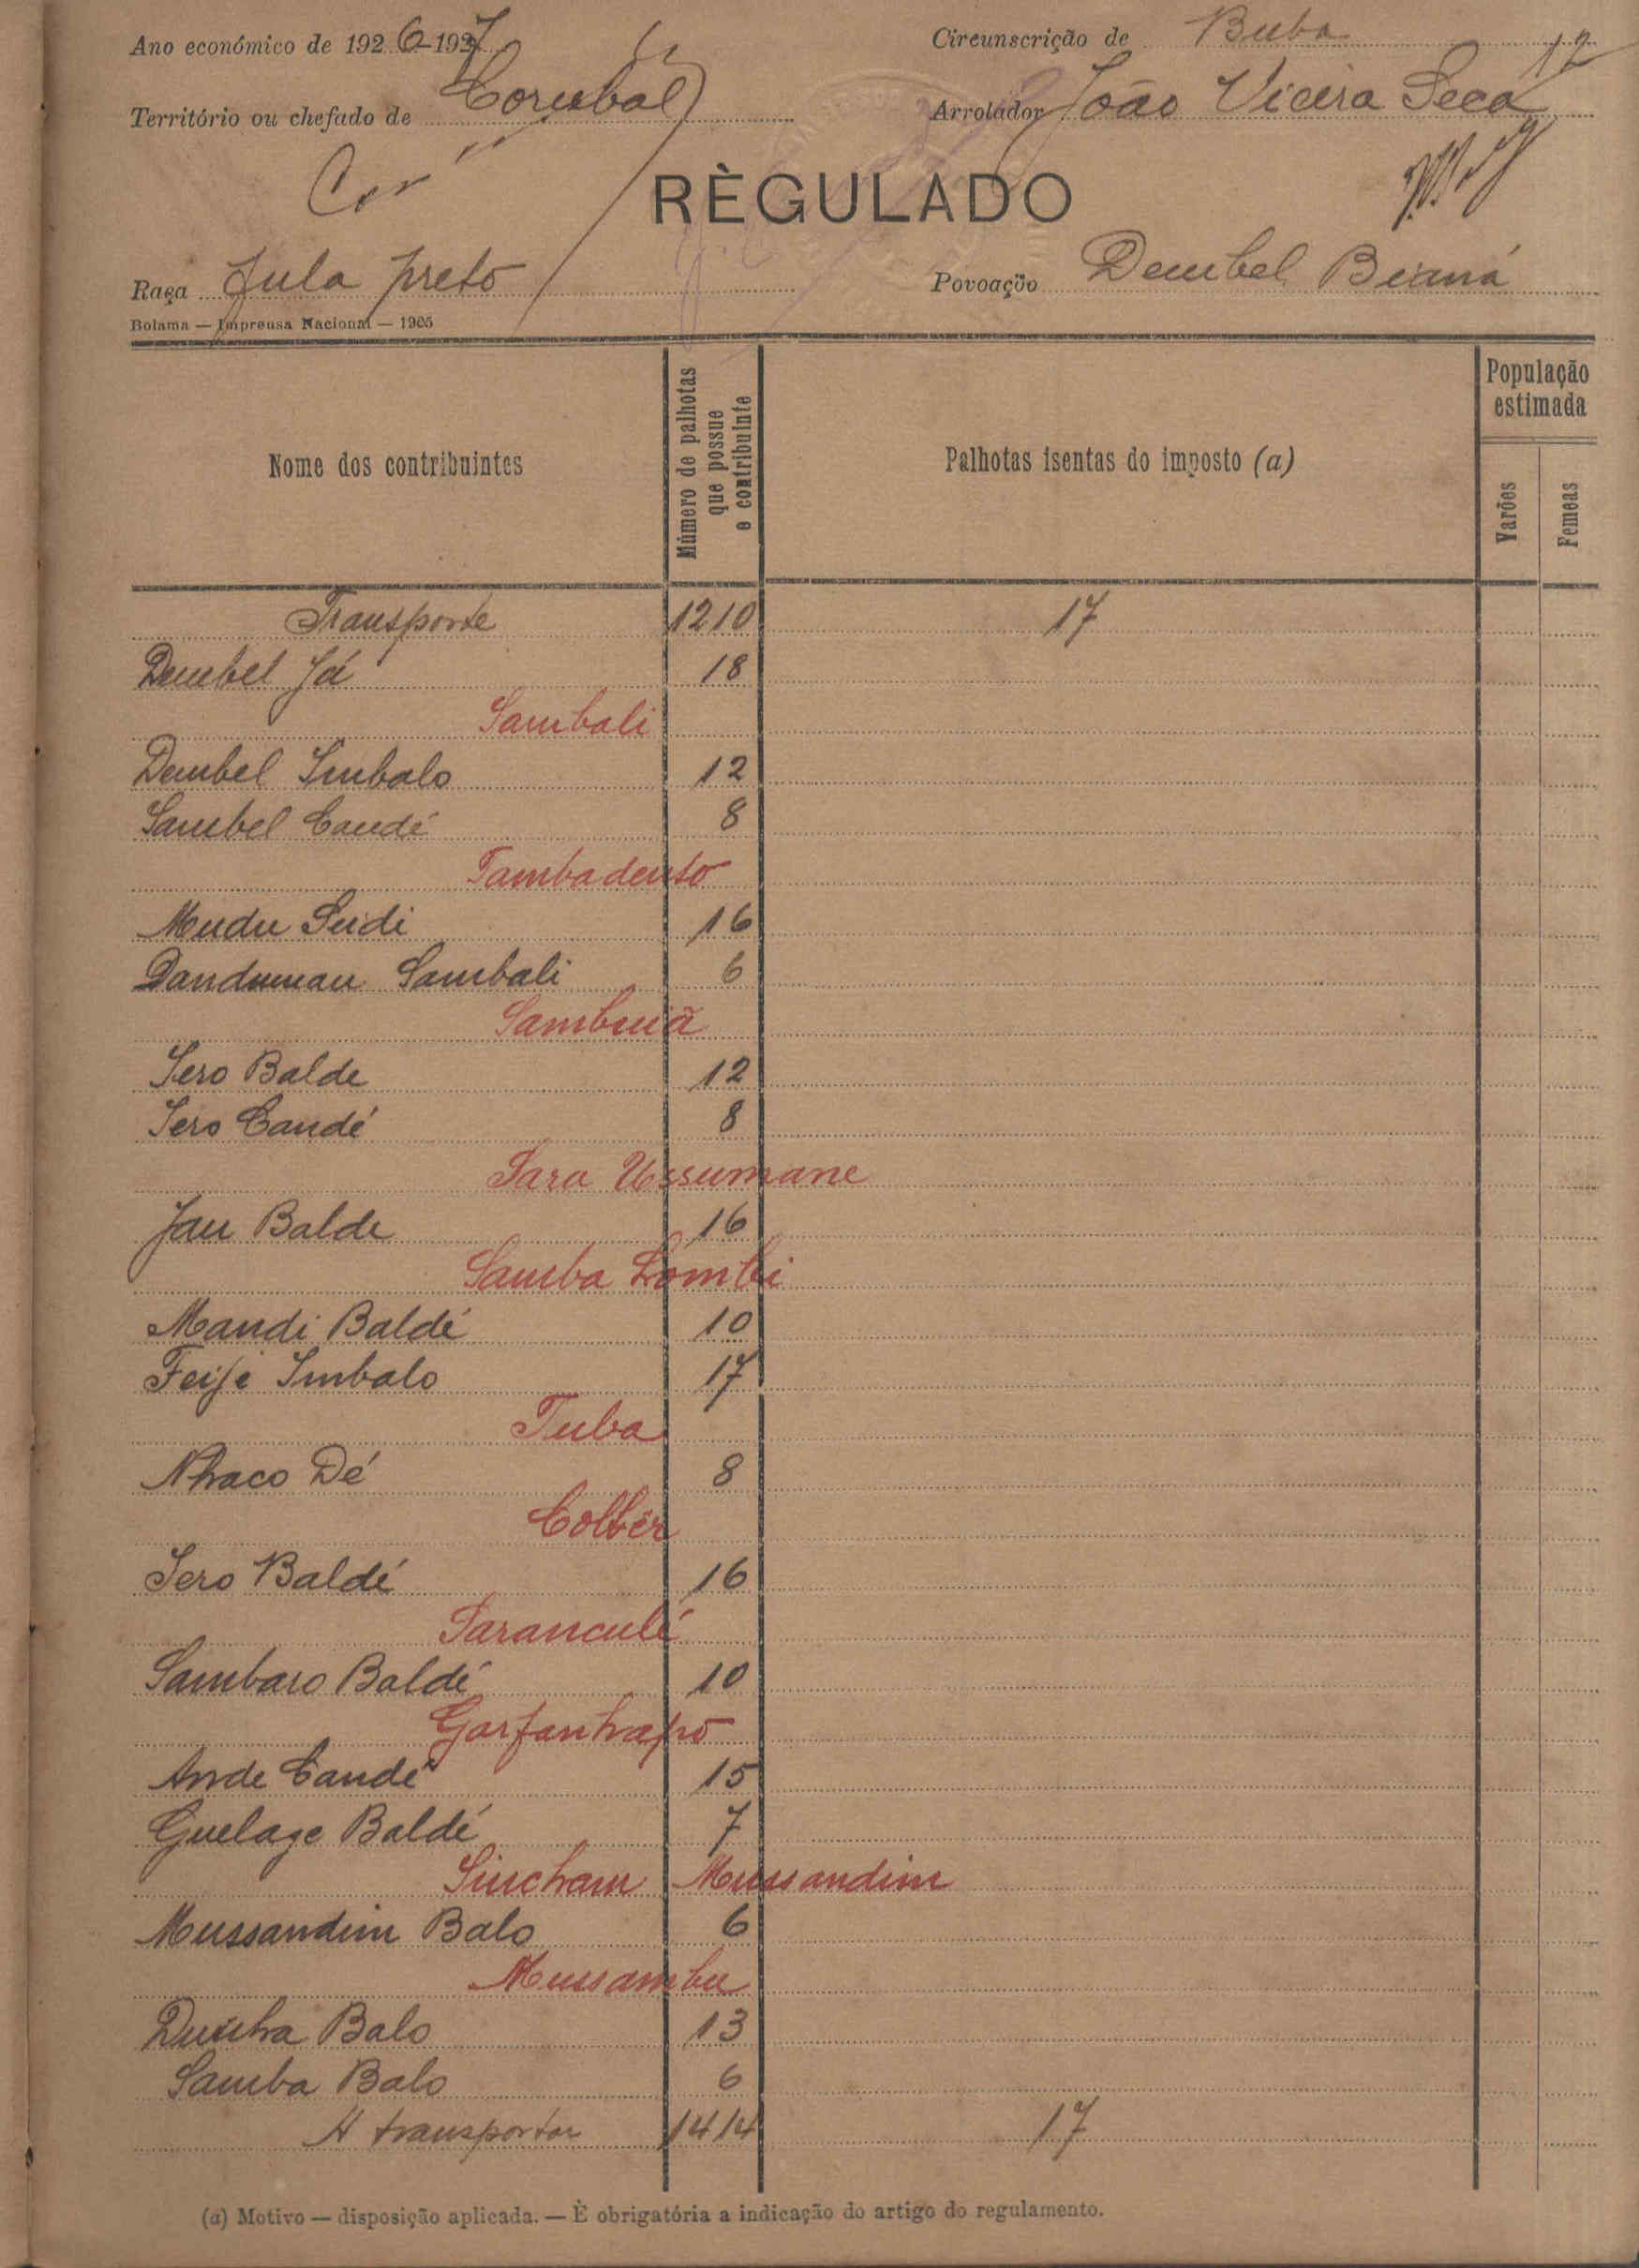 Ano económico de 1926-1927 Circunscrição de Buba
12
Território ou chefado de Corubal Arrolador João Vieira Seca
RÈGULADO
Raça Fula preto Povoação Dembel Bianá
Bolama — Imprensa Nacional — 1925
Nome dos contribuintes
Número de palhotas que possue o contribuinte
Palhotas isentas do imposto (a)
População estimada
Varões
Femeas
Transporte 1210 17
Dembel Já 18
Sambali
Dembel Imbalo 12
Sambel Candé 8
Tambadento
Mudu Seidi 16
Danduman Sambali 6
Sambuiã
Sero Balde 12
Sero Candé 8
Sara Ussumane
Jau Balde 16
Samba Lombi
Mandi Baldé 10
Feiji Imbalo 17
Tuba
Nhaco Dé 8
Colber
Sero Baldé 16
Saranculé
Sambaro Baldé 10
Garfanhapo
Ande Candé 15
Guelage Baldé 7
Sincham Mussandim
Mussandim Balo 6
Mussambu
Duuha Balo 13
Samba Balo 6
A transportar 1414 17
(a) Motivo — disposição aplicada. — È obrigatória a indicação do artigo do regulamento.